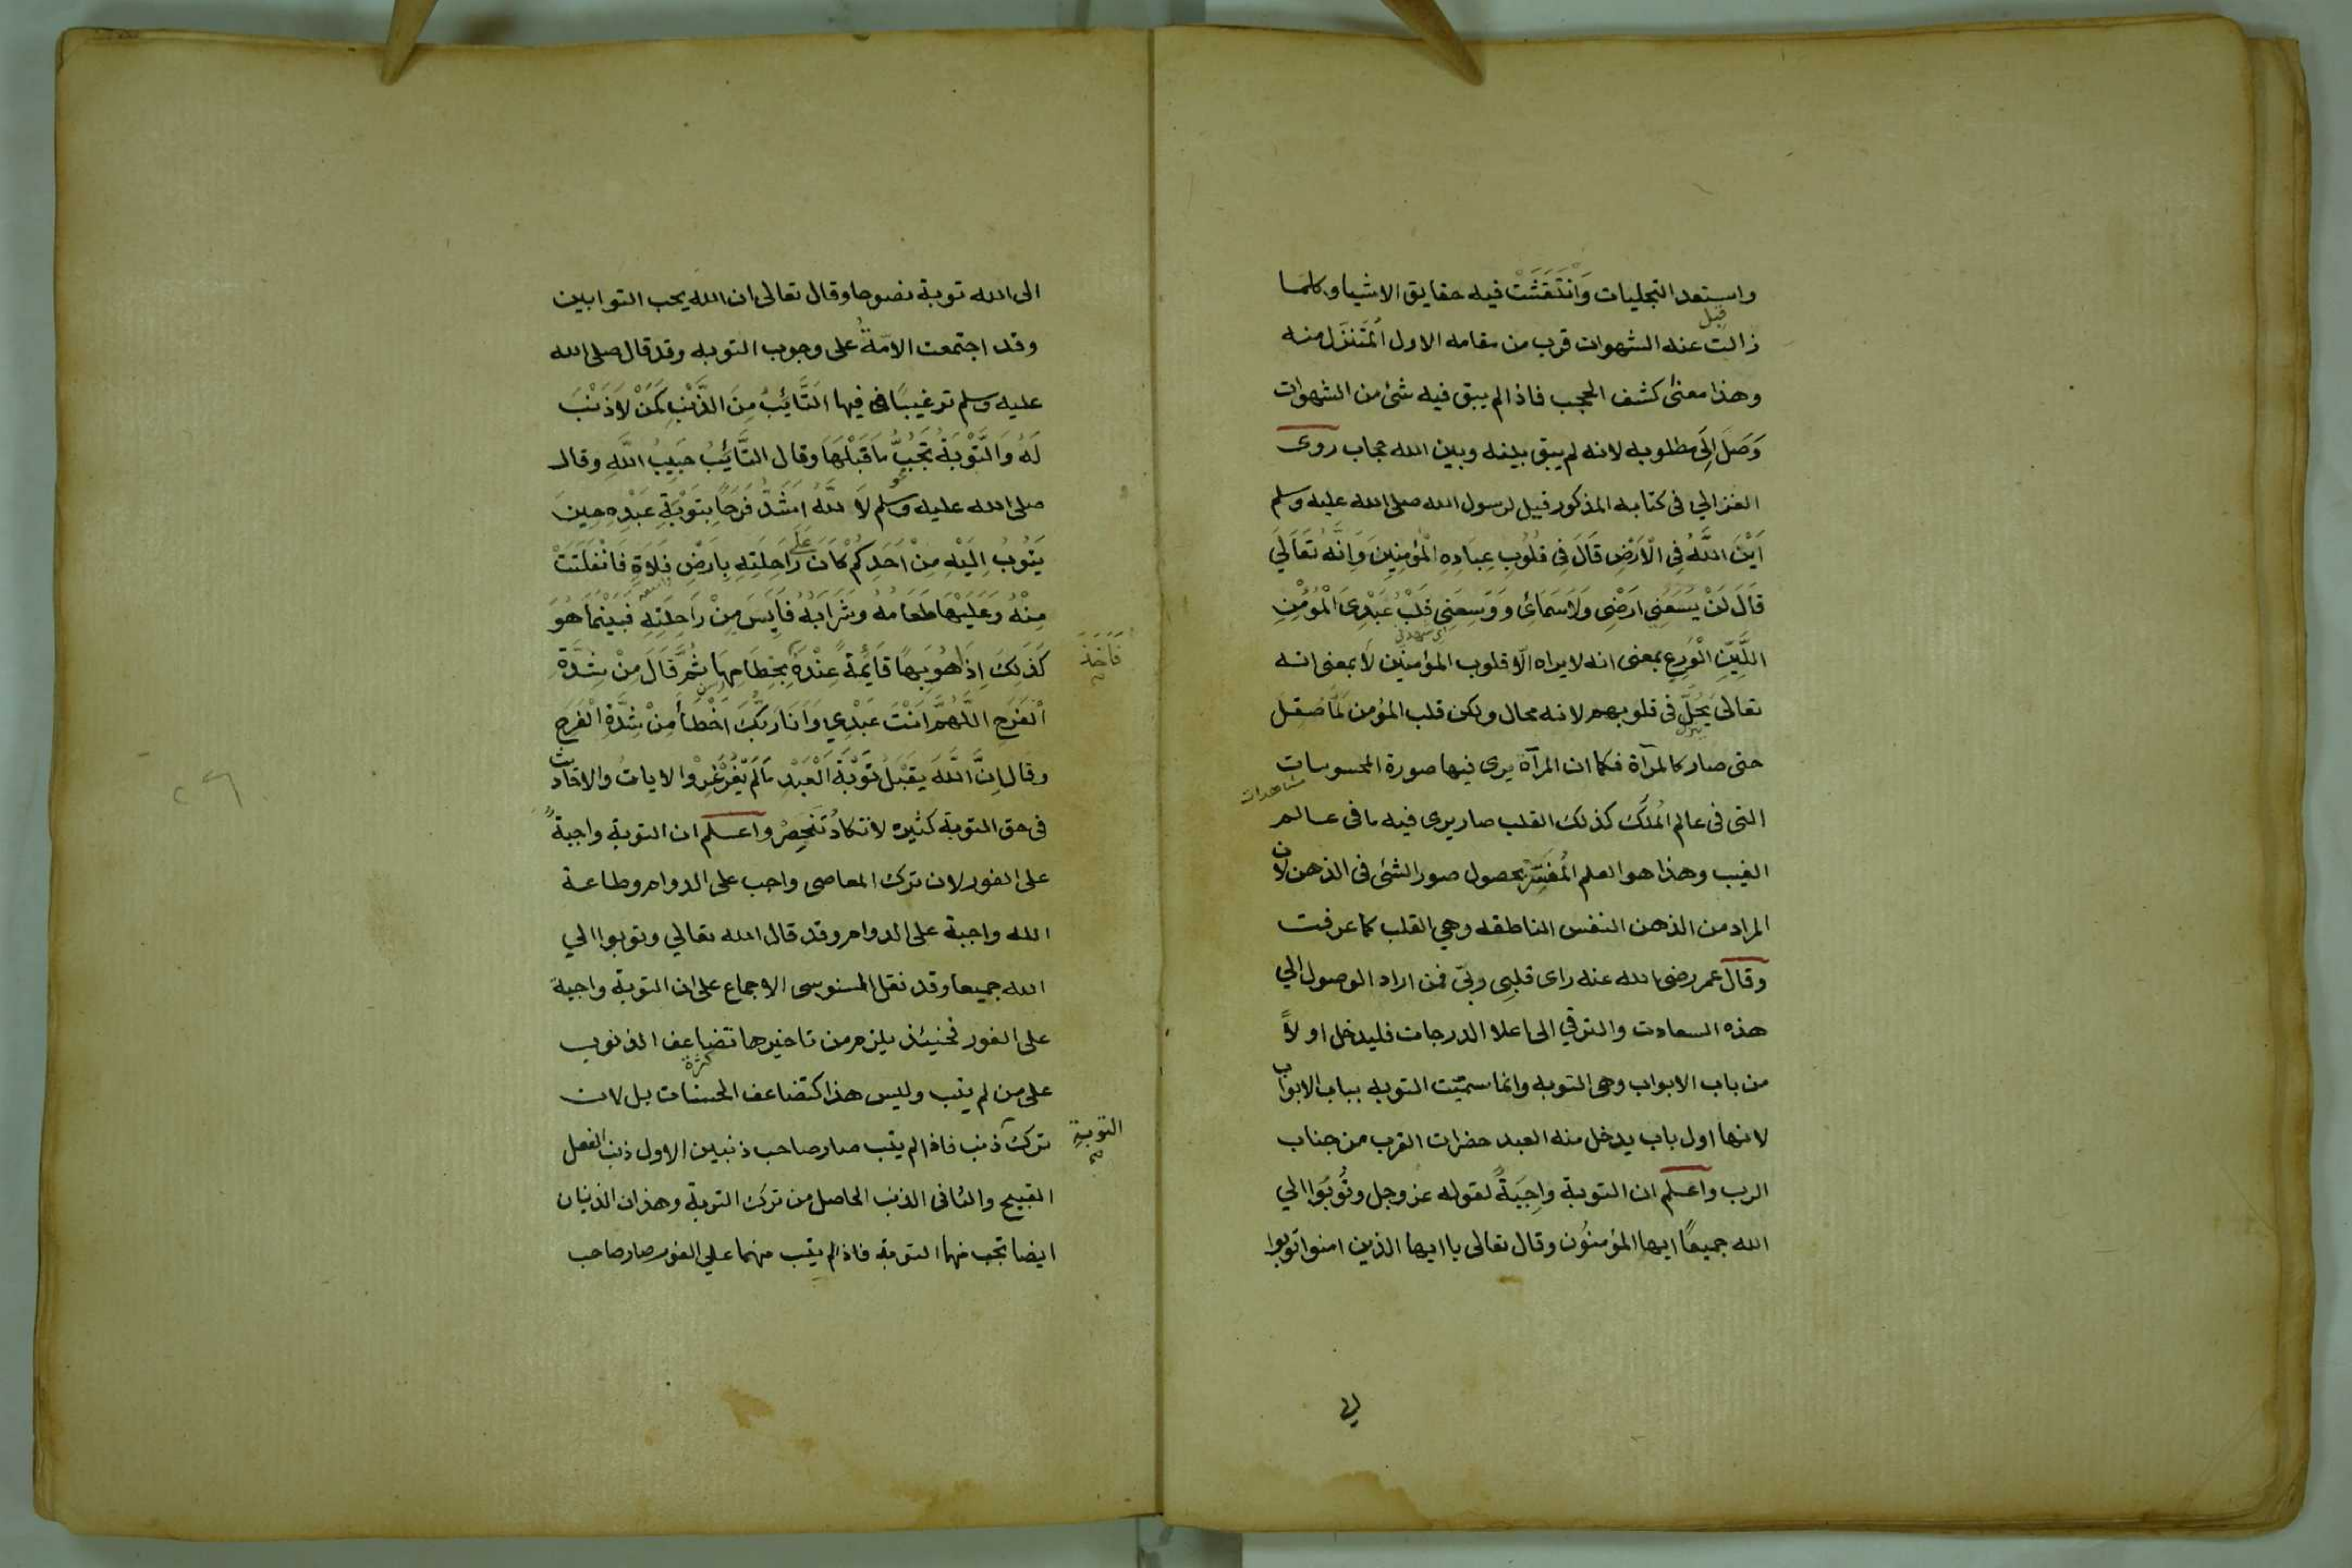 واستعد التجليات وَانْتَقَشَتْ فيه حقايق الاشيا وكلمَا
قبل
زالت عنه الشهوات قرب من مقامه الاول المُتَنَزَّل منه
وهذا معنى كشف الحجب فاذا لم يبق فيه شئ من الشهوات
وَصَلَ اِلَى مطلوبه لانه لم يبق بينه وبين الله حجاب روى
الغزالي فى كتابه المذكور قيل لرسول الله صلى الله عليه وسلم
اَيْنَ اللَّهُ فِى الْاَرْضِ قَالَ فِى قُلُوبِ عِبَادِهِ الْمُؤْمِنِينَ وَاِنَّهُ تَعَالَي
قَالَ لَنْ يَسَعَنِى اَرْضِى وَلَا سَمَائِى وَوَسِعَنِى قَلْبُ عَبْدِىَ الْمُؤْمِنِ
اللَّيِّنِ الْوَرِعِ بمعنى انه لا يراه الّا قلوب المؤمنين لَا بمعنى انه
تعالى يَحُلّ فى قلوبهم لانه محال ولكن قلب المؤمن لَمَّا صقل
ينزل
حتى صار كالمرآة فكما ان المرآة يرى فيها صورة المحسوسات
مشاهدات
التى فى عالم المُلك كذلك القلب صار يرى فيه ما فى عالم
الغيب وهذا هو العلم المُفَسَّر بحصول صور الشئ فى الذهن لان
المراد من الذهن النفس الناطقه وهي القلب كما عرفت
وقال عمر رضى الله عنه راى قلبِى ربّى فمن اراد الوصول الي
هذه السعادت والترقي الى اعلا الدرجات فليدخل اولاً
من باب الابواب وهى التوبه وانما سمّيّت التوبه بباب الابواب
لانها اول باب يدخل منه العبد حضرات القرب من جناب
الرب واعلم ان التوبة واجِبَةٌ لقوله عز وجل وتُوبُوا الي
الله جميعًا ايها المؤمنُون وقال تعالى يا ايها الذين امنوا توبوا
الى الله توبة نصوحا وقال تعالى ان الله يحب التوابين
وقد اجتمعت الامّةُ على وجوب التوبه وقد قال صلى الله
عليه وسلم ترغيبًا فيها التَّائِبُ مِنَ الذَّنْبِ كَمَنْ لَا ذَنْبَ
لَهُ وَالتَّوْبَةُ تَجُبُّ مَا قَبْلَهَا وقال التَّائِبُ حَبِيبُ اللَّهِ وقال
صلى الله عليه وسلم لَا للَّهُ اَشَدُّ فَرَحًا بِتَوْبَةِ عَبْدِهِ حِينَ
يَتُوبُ اِلَيْهِ مِنْ اَحَدِكُمْ كَانَ عَلَى رَاحِلَتِهِ بِاَرْضِ فَلَاةٍ فَانْفَلَتَتْ
مِنْهُ وَعَلَيْهَا طَعَامُهُ وَشَرَابُهُ فَاَيِسَ مِنْ رَاحِلَتِهِ فَبَيْنَمَا هُوَ
كَذَلِكَ اِذَا هُوَ بِهَا قَايِمَةً عِنْدَهُ بِخِطَامِهَا ثُمَّ قَالَ مِنْ شِدَّةِ
فَاَخَذَ
صح
الْفَرَحِ اللَّهُمَّ اَنْتَ عَبْدِي وَاَنَا رَبُّكَ اَخْطَأَ مِنْ شِدَّةِ الْفَرَحِ
وقال اِنَّ اللَّهَ يَقْبَلُ تَوْبَةَ الْعَبْدِ مَا لَمْ يُغَرْغِرْ والايات والاحاديث
فى حق التوبة كثيره لا تكادُ تَنْحَصِرُ واعلم ان التوبة واجبةٌ
على الفور لان ترك المعاصى واجب على الدوام وطاعة
الله واجبة على الدوام وقد قال الله تعالي وتوبوا الي
الله جميعا وقد نقل السنوسى الاجماع على ان التوبة واجبة
على الفور فحينئذ يلزم من تاخيرها تضاعف الذنوب
على من لم يتب وليس هذا كتضاعف الحسنات بل لان
كثرة
ترك ذنب فاذا لم يتب صار صاحب ذنبين الاول ذنب الفعل
التوبةِ
صح
القبيح والثانى الذنب الحاصل من ترك التوبة وهذان الذنبان
ايضا تجب منهما التوبة فاذا لم يتب منهما علي الفور صار صاحب